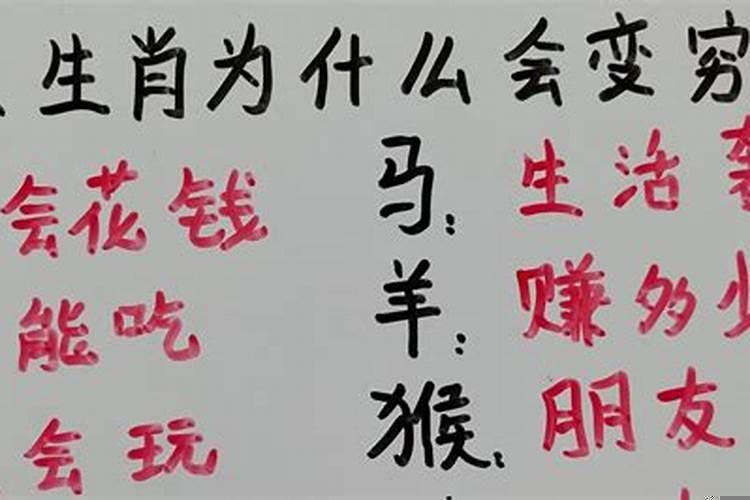 生肖为什么会变穷
会花钱 马：生活
能吃 羊：赚多少
会玩 猴：朋友